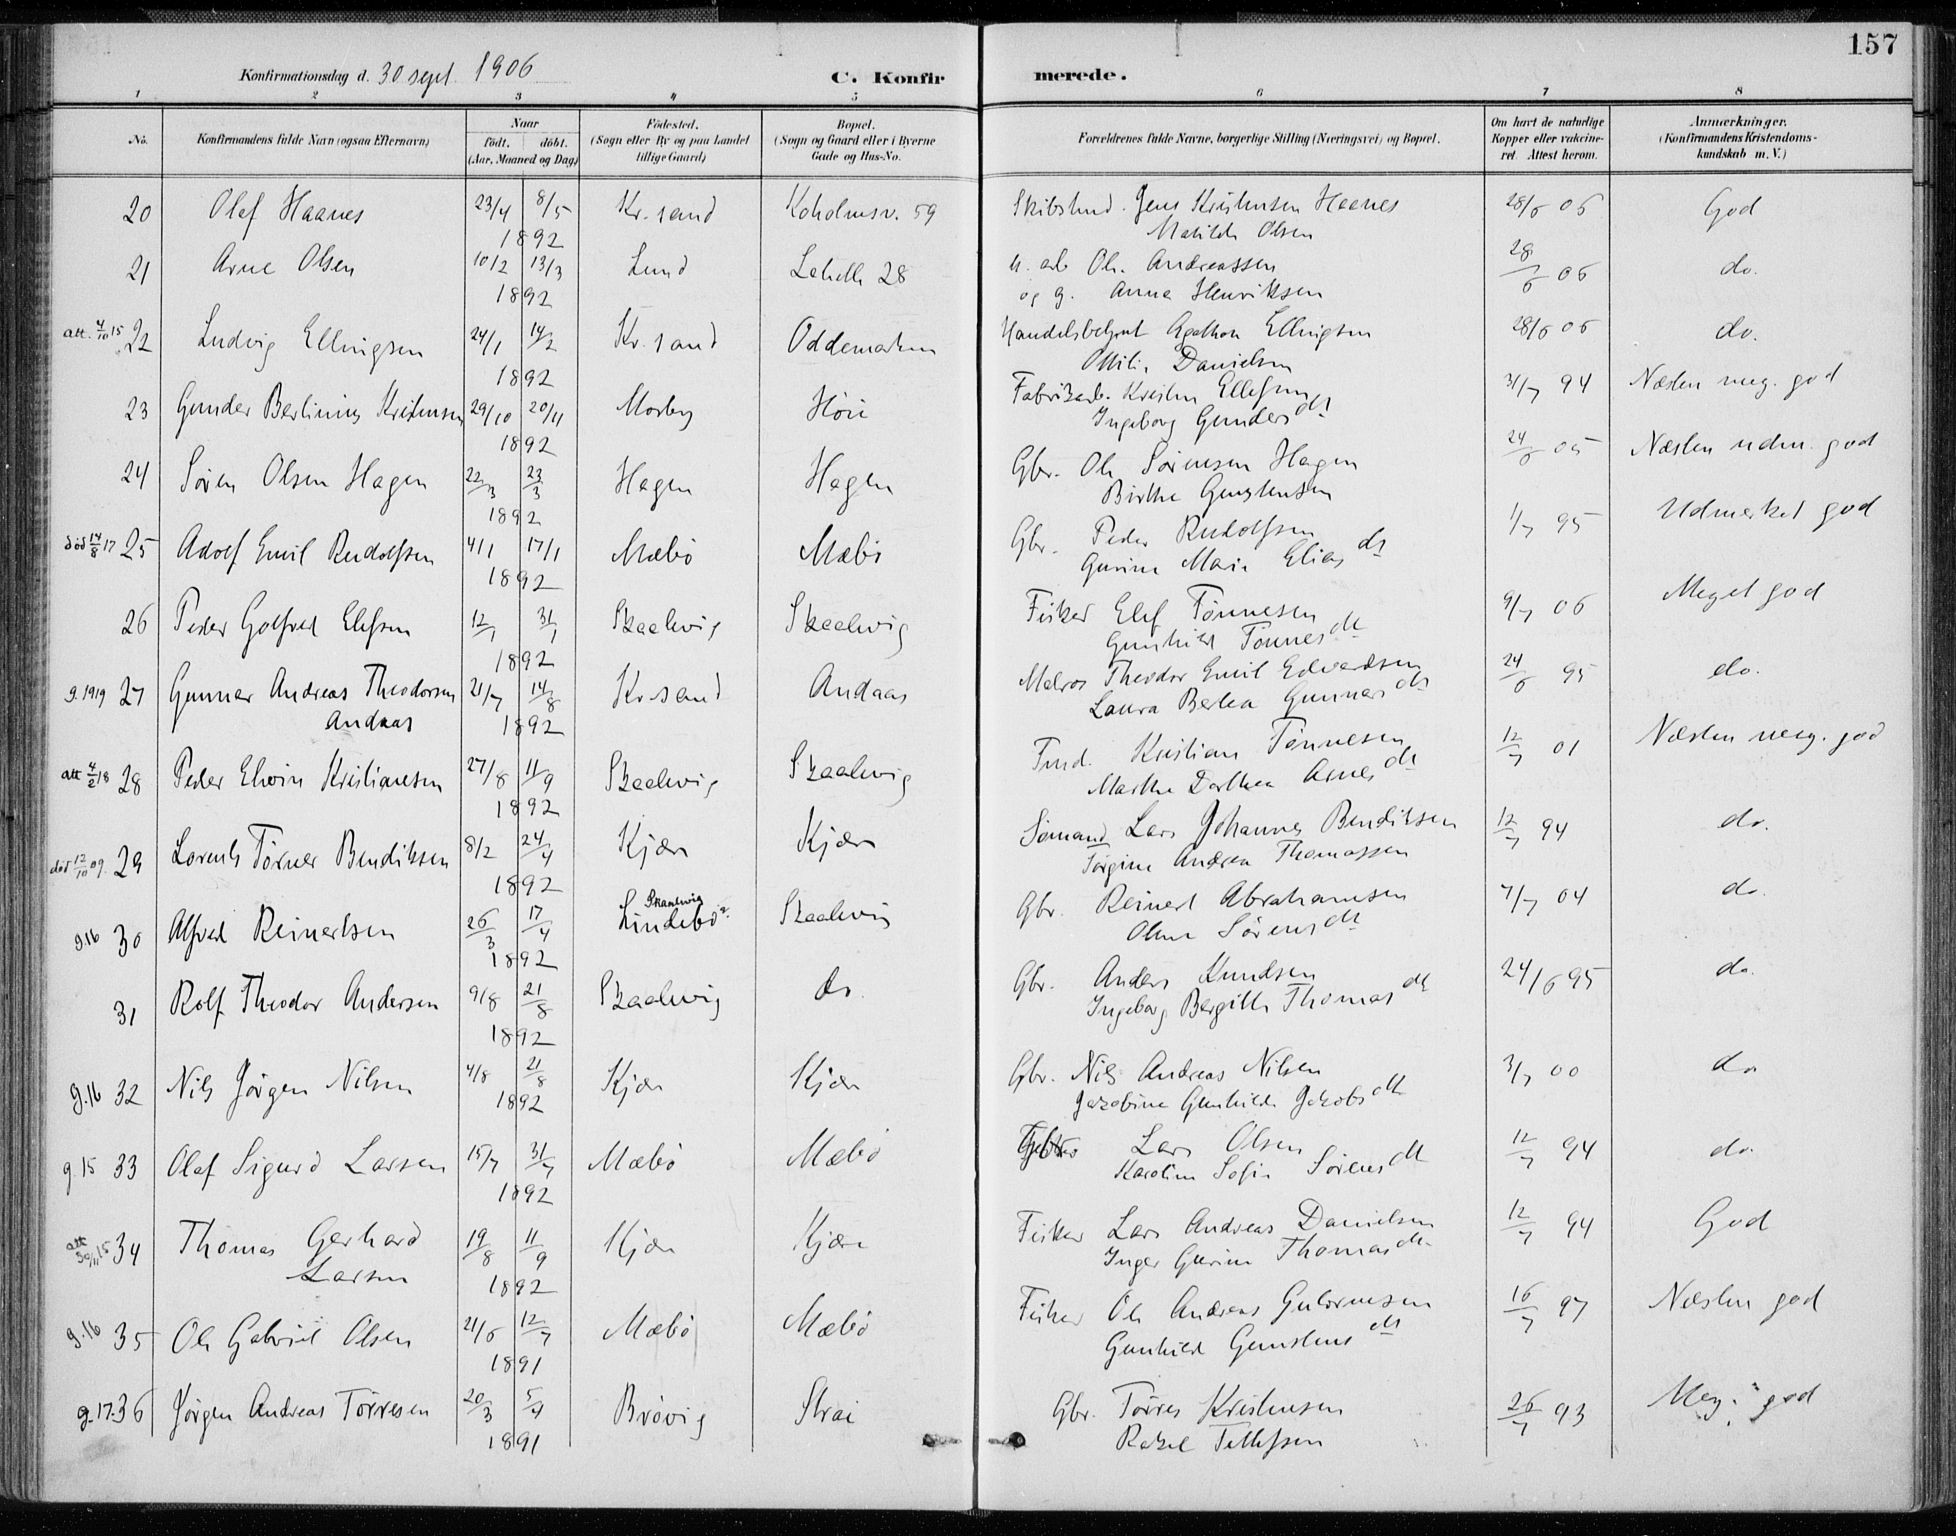 157
Konfirmationsdag d. 30 sept. 1906 C. Konfir merede.
1 2 3 4 5 6 7 8
No. Konfirmandens fulde Navn (ogsaa Efternavn) Naar født. døbt. (Aar, Maaned og Dag) Fødested. (Sogn eller By og paa Landet tillige Gaard) Bopæl. (Sogn og Gaard eller i Byerne Gade og Hus-No. Forældrenes fulde Navne, borgerlige Stilling (Næringsvei) og Bopæl. Om havt de naturlige Kopper eller vakcineret Attest herom. Anmærkninger. (Konfirmandens Kristendomskundskab m. V.)
20 Olaf Haanes 23/4 8/5 Kr.sand Koholmsv. 59 Jens Kristensen Haanes 28/6 06 God
1892 Matilde Olsen
21 Arne Olsen 10/2 13/3 Lund 28 Andreassen 28/6 06 do.
1892 og g. Anna Henriksen
att. 4/10 15 22 Ludvig Ellingsen 24/1 14/2 Kr.sand Oddemarken Agathon Ellingsen 28/6 06 do.
1892 Danielsen
23 Gunder Berlinius Kristensen 29/10 20/11 Mosby Høie Fabrikarb. Kristen Ellefsen 31/7 94 Næsten meg. god
1892 Ingeborg Gundersdt
24 Søren Olsen Hagen 22/3 23/3 Hagen Hagen Gbr. Ole Sørensen Hagen 24/6 05 Næsten udm. god
1892 Birthe Gunstensen
død 14/8 17 25 Adolf Emil Rudolfsen 4/1 17/1 Mæbø Mæbø Gbr. Peder Rudolfsen 1/7 95 Udmerket god
1892 Gurine Marie Eliasdt
26 Peder Golfred Elefsen 12/1 31/1 Skaalevig Skaalevig Fisker Elef Tønnesen 9/7 06 Meget god
1892 Gunhild Tønnesdt
g. 1919 27 Gunnar Andreas Theodorsen 21/7 14/8 Kr.sand Andaas Matros Theodor Emil Edvardsen 24/6 95 do.
Andaas 1892 Laura Bertea Gunnarsdt
att 4/2 18 28 Peder Elvin Kristiansen 27/8 11/9 Skaalevig Skaalevig Kristian Tønnesen 12/7 01 Næsten meg. god
1892 Marthe Dorthea Arnesdt
død 12/10 09. 29 Lorents Tørner Bendiksen 8/2 24/4 Kjær Kjær Sømand Lars Johannes Bendiksen 12/7 94 do.
1892 Tørgine Andrea Thomassen
g.16 30 Alfred Reinertsen 26/3 17/4 Skaalevig Lindebø Skaalevig Gbr. Reinert Abrahamsen 7/7 04 do.
1892 Oline Sørensdt
31 Rolf Theodor Andersen 9/8 21/8 Skaalevig do. Gbr. Anders Knudsen 24/6 95 do.
1892 Ingeborg Bergitte Thomasdt
g.16 32 Nils Jørgen Nilsen 4/8 21/8 Kjær Kjær Gbr. Nils Andreas Nilsen 3/7 00 do.
1892 Jakobine Gunhilde Jakobsdt
g.15 33 Olaf Sigurd Larsen 15/7 31/7 Mæbø Mæbø Lars Olsen 12/7 94 do.
1892 Karoline Sofie Sørensdt
att 30/11 15 34 Thomas Gerhard 19/8 11/9 Kjær Kjær Fisker Lars Andreas Danielsen 12/7 94 God
Larsen 1892 Inger Gurine Thomasdt
g.16 35 Ole Gabriel Olsen 21/6 12/7 Mæbø Mæbø Fisker Ole Andreas Gulormsen 16/7 97 Næsten god
1891 Gunhild Gunstensdt
g.17. 36 Jørgen Andreas Tørresen 20/3 5/4 Brøvig Strai Gbr. Tørres Kristensen 26/7 93 Meg. god
1891 Rakel Tellefsen